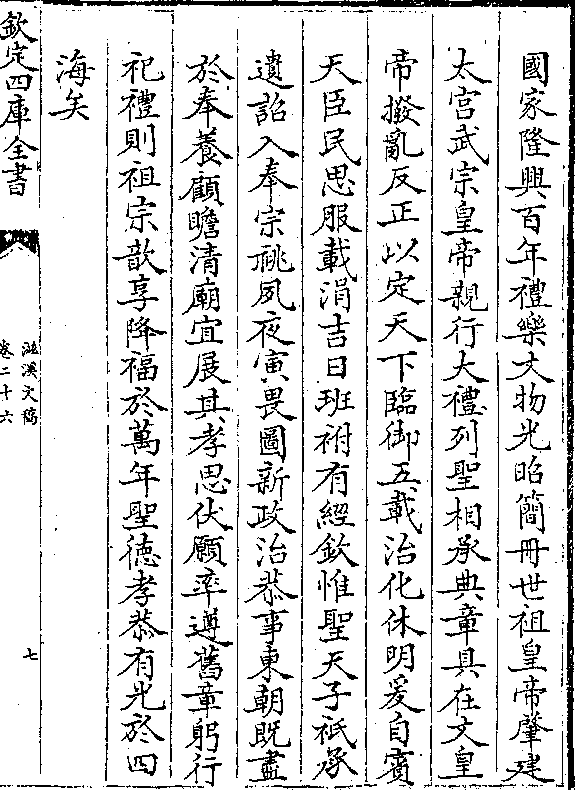 國家隆興百年禮樂文物光昭簡冊世祖皇帝肇建
太宫武宗皇帝親行大禮列聖相承典章具在文皇
帝撥亂反正以定天下臨御五載治化休明爰自賓
天臣民思服載涓吉日班祔有經欽惟聖天子祗承
遺詔入奉宗祧夙夜寅畏圖新政治恭事東朝既盡
於奉養顧瞻清廟宜展其孝思伏願率遵舊章躬行
祀禮則祖宗歆享降福於萬年聖徳孝恭有光於四
海矣
欽定四庫全書
滋溪文稿
卷二十六
七